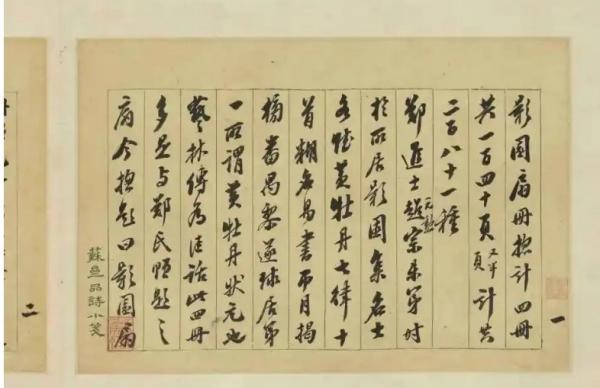 一
影園扇冊總計四冊
共一百四十頁又半頁計共
二百八十一種
鄭進士超宗元勳未第時
於所居影園集名士
各賦黃牡丹七律十
首糊名易書而月揭
榜番禺黎遂球居第
一所謂黃牡丹狀元也
藝林傳為佳話此四冊
多是与鄭氏題之
扇今總題曰影園扇
蘇品詩小箋
二